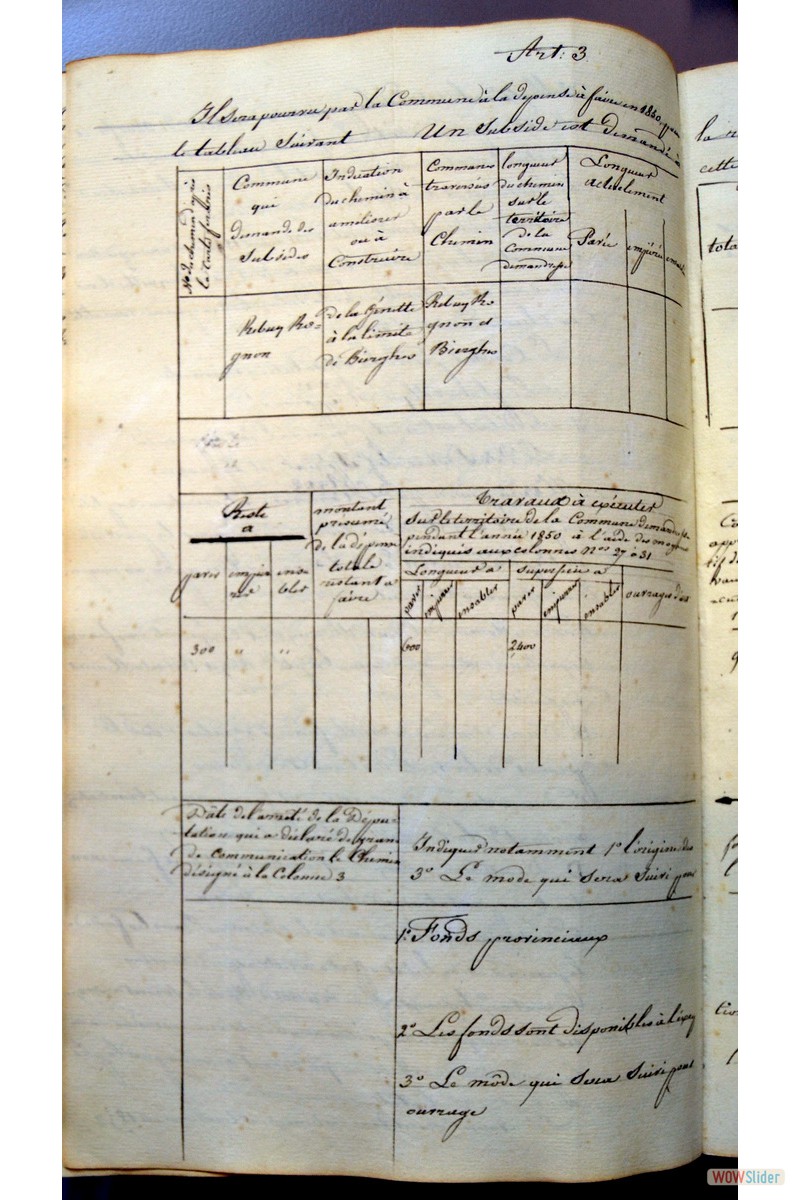 Art: 3
Il sera pourvu par la Commune à la dépense à faire en 1850
le tableau Suivant Un Subside est demandé
la
cette
No du chemin d'après
Commune
qui
demande des
Subsides
Indication
du chemin à
améliorer
ou à
Construire
Communes
traversées
par le
Chemin
longueur
du chemin
sur le
territoire
de la
Commune
demanderesse
Longueur
actuelement
Pavée
empierrée
tota
Rebecq Ro=
gnon
De la Genette
à la limite
de Bierghes
Rebecq Ro
gnon et
Bierghes
Reste
a
paver
empier
rer
ensa
bler
montant
présumé
de la dépense
totale
restant a
faire
Travaux à exécuter
Sur le territoire de la Commune demanderesse
pendant l'année 1850 à l'aide des moyens
indiqués aux colonnes Nos 27 à 31
Longueur a
superficie a
paver
empierrer
ensabler
paver
empierrer
ensabler
ouvrages d'art
300 " "
600
2400
Date de l'arrêté de la Dépu=
tation qui a déclaré de gran=
de communication le Chemin
désigné à la Colonne 3
Indiquer notamment 1° l'origine des
3° Le mode qui sera Suivi pour
1° Fonds provinciaux
2° Les fonds sont disponibles à
3° Le môde qui sera Suivi pour
ouvrage
WOWSlider